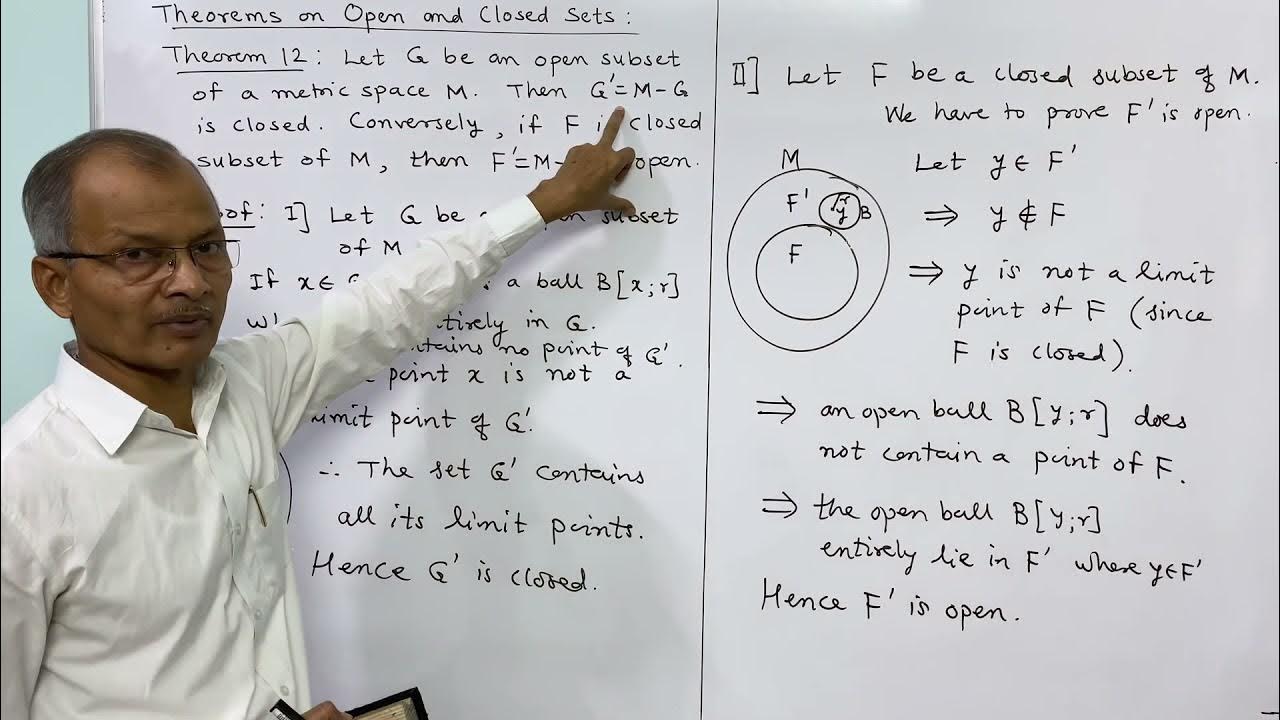 Theorems on Open and Closed Sets:
Theorem 12: Let G be an open subset
of a metric space M. Then G'=M-G
is closed. Conversely, if F is closed
subset of M, then F'=M- open.
of: I] Let G be open subset
of M
If x∈ a ball B[x;r]
in G.
no point of G'.
point x is not a
limit point of G'.
∴ The set G' contains
all its limit points.
Hence G' is closed.
II] Let F be a closed subset of M.
We have to prove F' is open.
M
F'
r
y
B
F
Let y∈F'
⇒ y∉F
⇒ y is not a limit
point of F (since
F is closed).
⇒ an open ball B[y;r] does
not contain a point of F.
⇒ the open ball B[y;r]
entirely lie in F' where y∈F'
Hence F' is open.